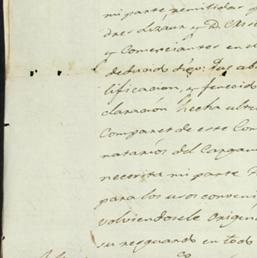 mi parte, remitidas p
dres Lizaur y D.
y Comerciantes en e
deducido digo: Que ab
lificacion, y fenecid
claracion hecha ultr
Compares de este Com
natarios del Cargam
necesita mi parte
para los usos conveni
volviendosele Origena
su resguardo en todo